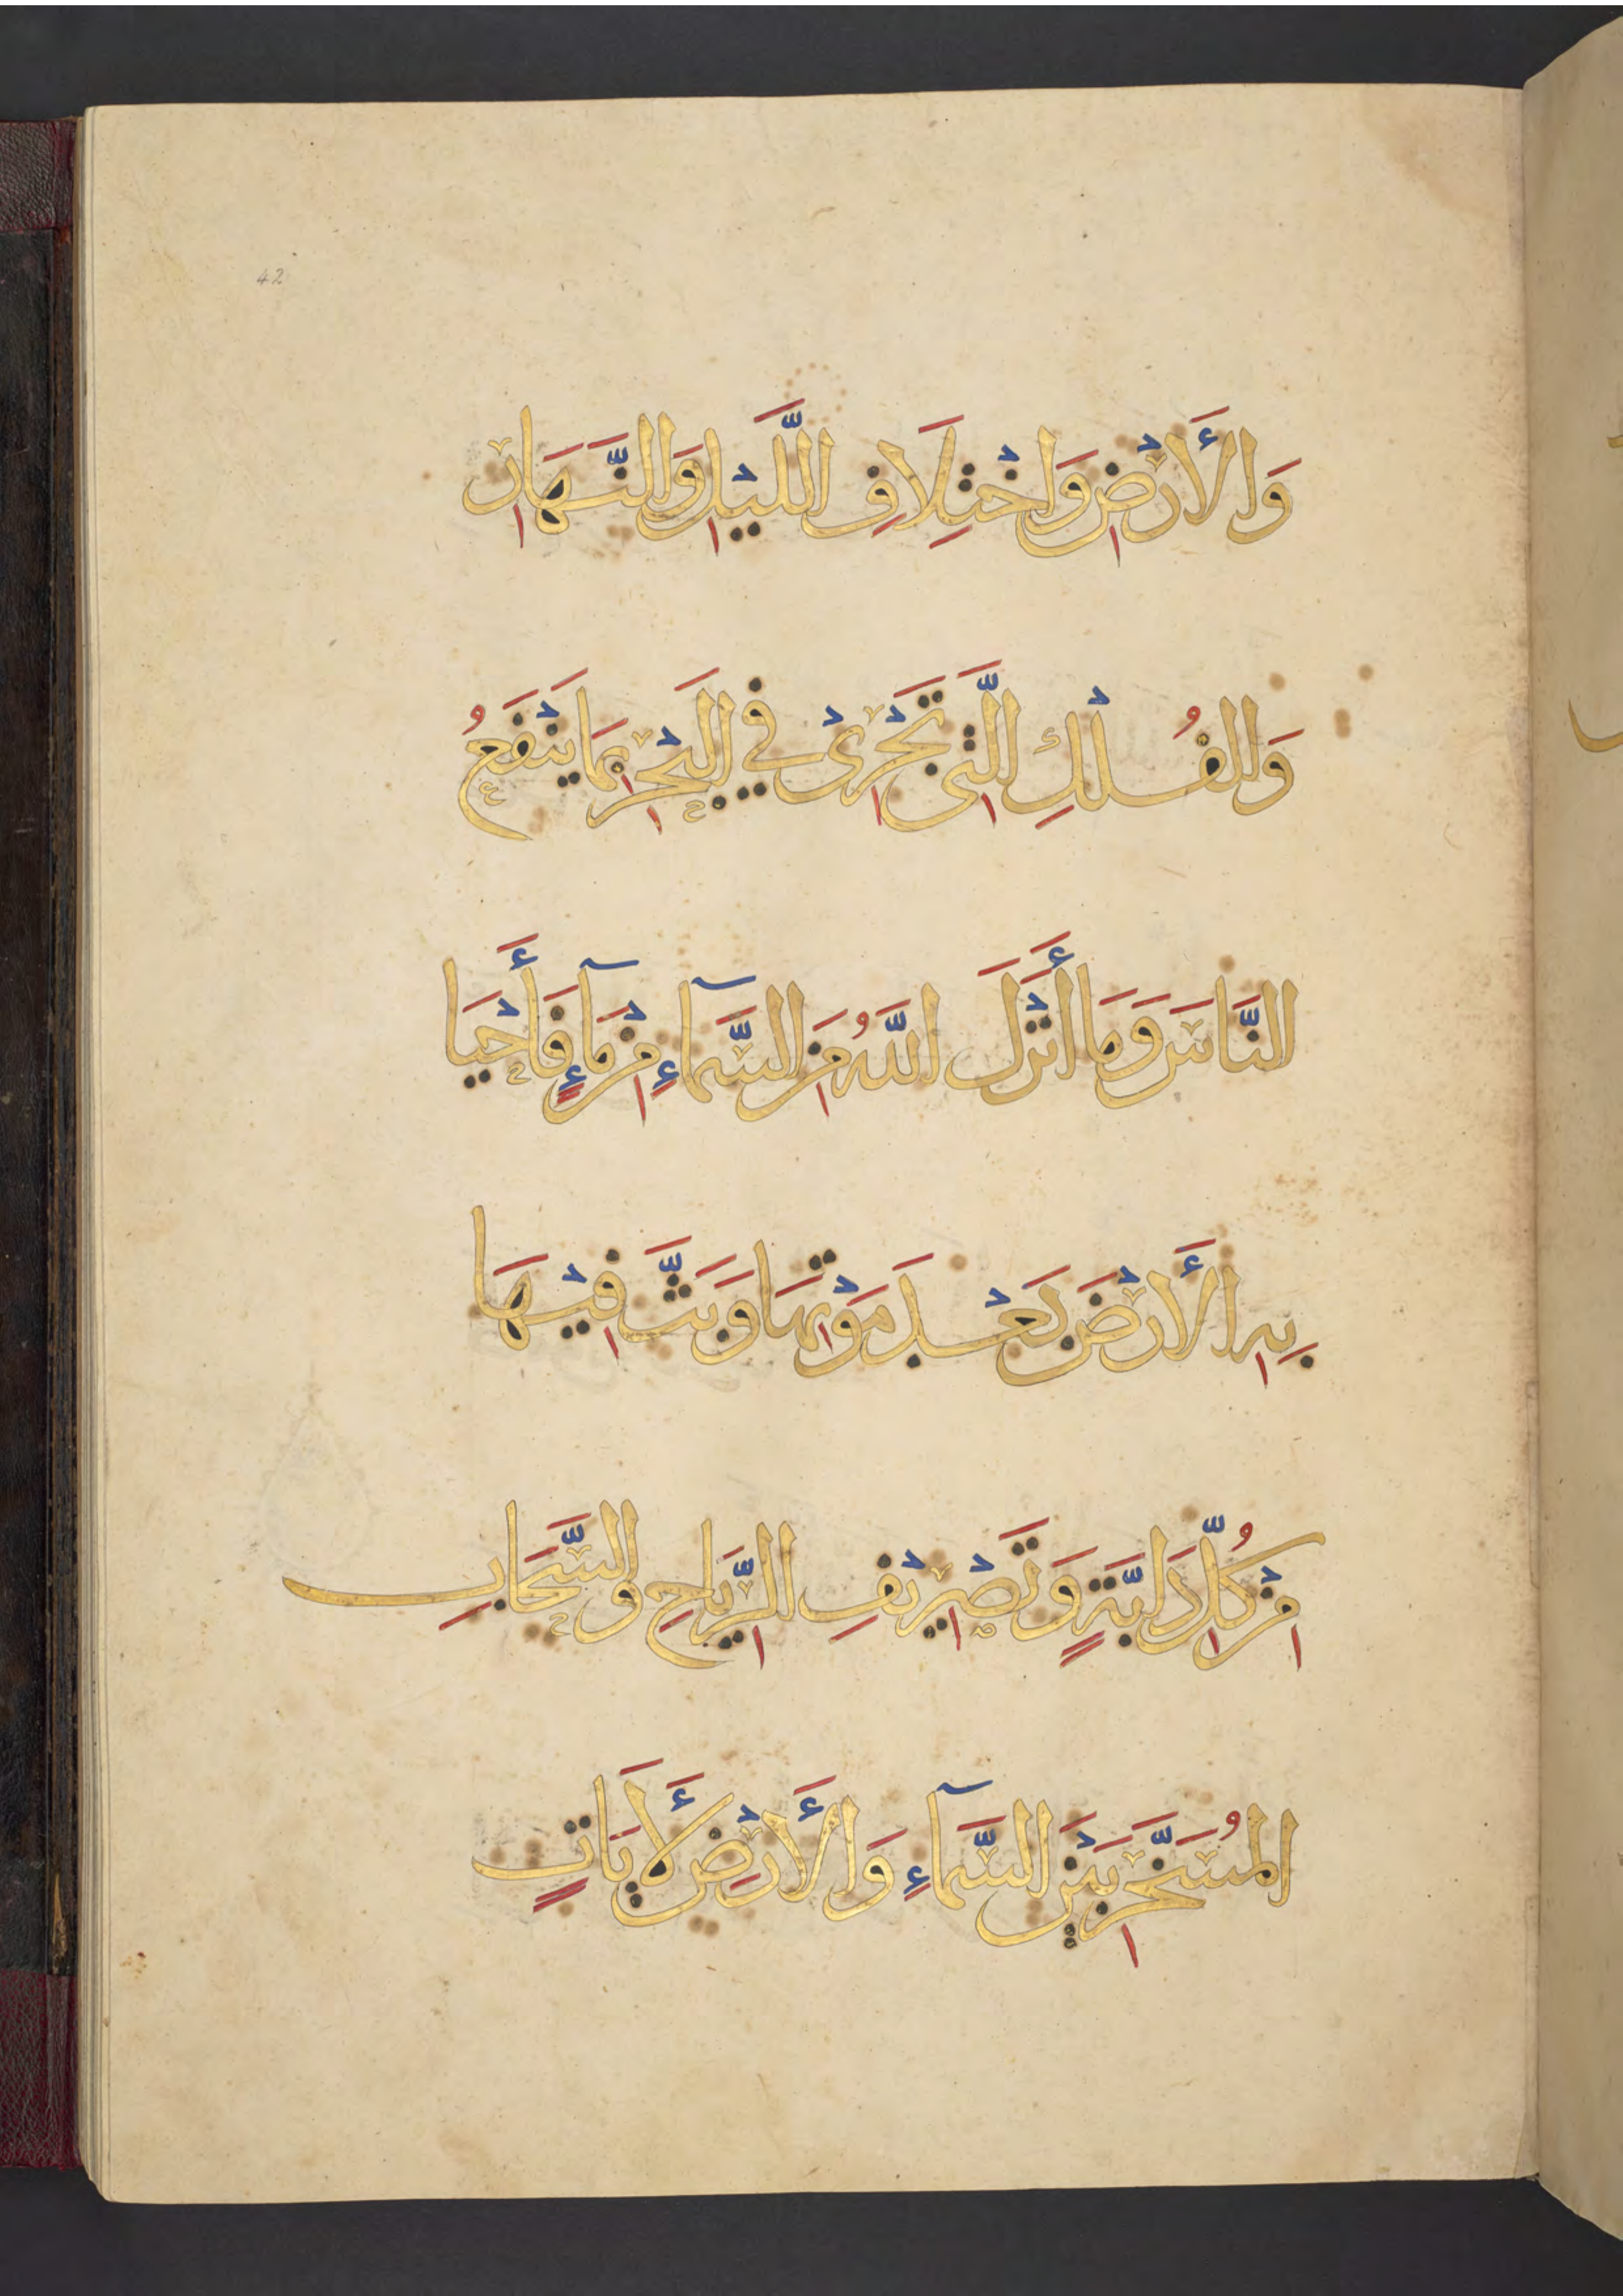 42
وَالْأَرْضِ وَاخْتِلَافِ اللَّيْلِ وَالنَّهَارِ
وَالْفُلْكِ الَّتِي تَجْرِيْ فِي الْبَحْرِ بِمَا يَنْفَعُ
النَّاسَ وَمَا أَنْزَلَ اللَّهُ مِنَ السَّمَآءِ مِنْ مَآءٍ فَأَحْيَا
بِهِ الْأَرْضَ بَعْدَ مَوْتِهَا وَبَثَّ فِيْهَا
مِنْ كُلِّ دَابَّةٍ وَتَصْرِيْفِ الرِّيَاحِ وَالسَّحَابِ
الْمُسَخَّرِ بَيْنَ السَّمَآءِ وَالْأَرْضِ لَأَيَاتٍ